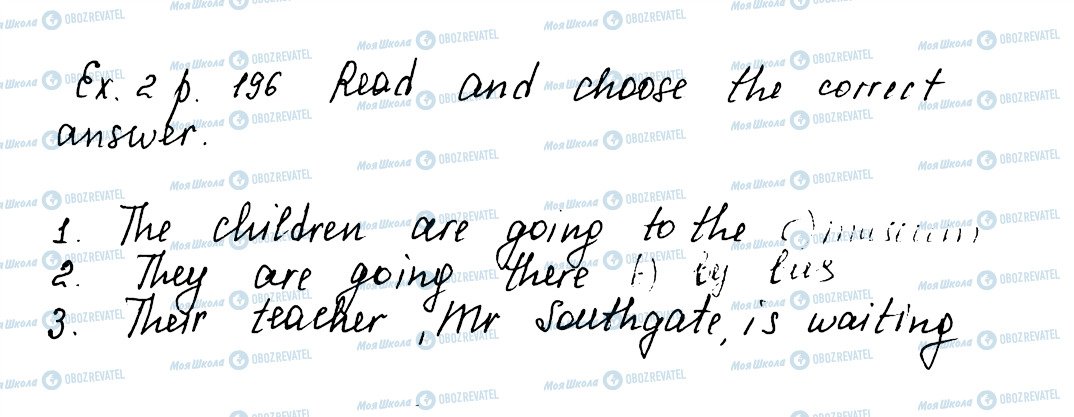 Ex. 2 p. 196 Read and choose the correct
answer.
1. The children are going to the museum
2. They are going there b) by bus
3. Their teacher, Mr Southgate, is waiting